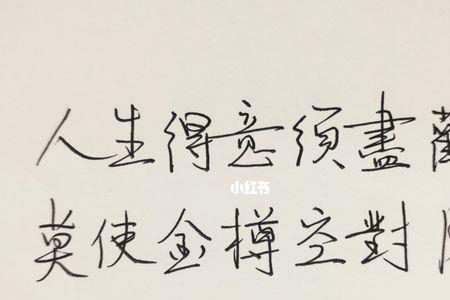 人生得意須盡
小红书
莫使金樽空對